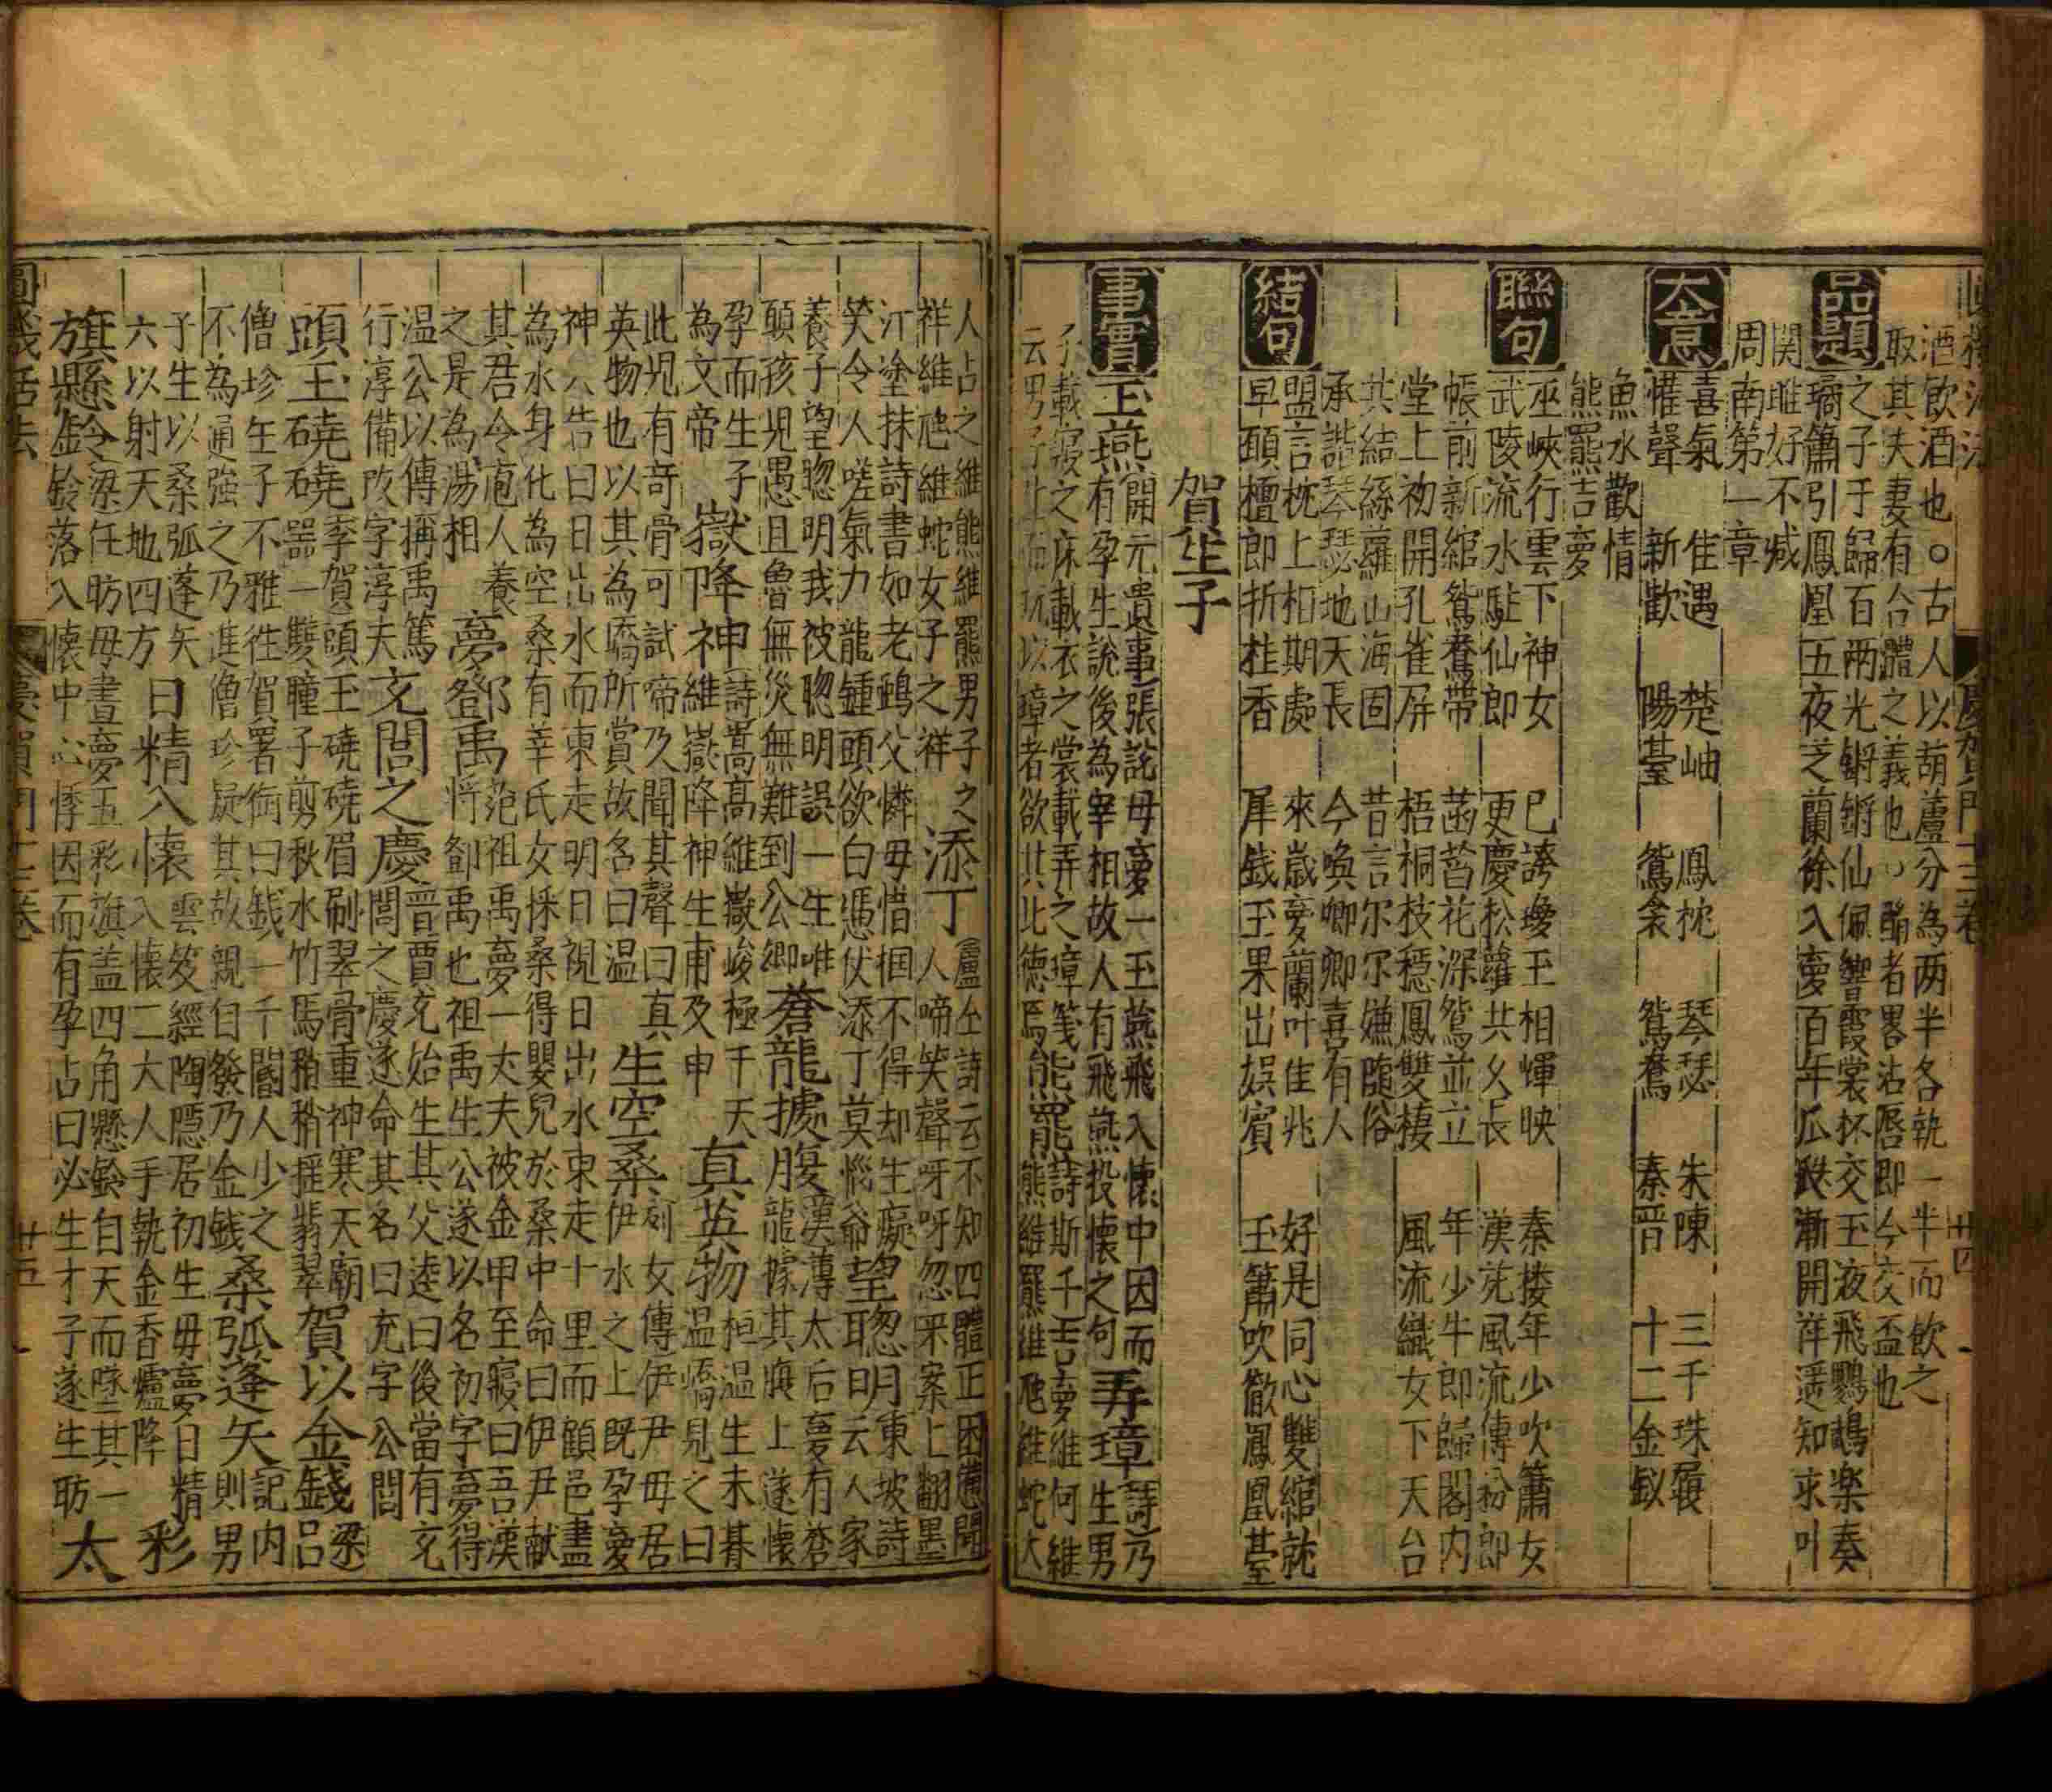 酒飲酒也○古人以葫蘆分為两半各執一半而飲之
取其夫妻有合體之義也○酳者畧沾唇即今交盃也
品題
之子于歸百兩光鏘鏘仙佩響霞裳杯交玉夜飛鸚鵡楽奏
璚簫引鳳凰五夜芝蘭徐入夢百年瓜瓞漸開祥遥知求叶
関雎好不减
周南第一章
大意
喜氣 佳遇 楚岫 鳳枕 琴瑟 朱陳 三千珠履
惟聲 新歡 陽臺 鴛衾 鴛鴦 秦晉 十二金釵
魚水歡情
熊羆吉夢
聯句
巫峽行雲下神女 已誇瓊玉相輝映 秦楼年少吹簫女
武陵流水駐仙郎 更慶松蘿共久長 漢苑風流傅粉郎
帳前新綰鴛鴦帶 菡萏花深鴛並立 年少牛郎歸閣内
堂上初開孔雀屏 梧桐枝穩鳳雙棲 風流織女下天台
共結絲蘿山海固 昔言尔尔嫌随俗
承諧琴瑟地天長 今喚卿卿喜有人
結句
盟言枕上相期處 來歲夢蘭叶佳兆 好是同心雙綰就
早頤檀郎折桂香 犀錢玉果出娯賓 玉簫吹徹鳳凰臺
賀生子
事實
玉燕開元遺事張說母夢一玉燕飛入懷中因而
有孕生說後為宰相故人有飛燕投懷之句弄璋詩乃生男
子載寢之床載衣之裳載弄之璋箋云男子生而玩以璋者欲其比德焉熊羆詩斯干吉夢維何維熊維羆維虺維蛇大
人占之維熊維羆男子之
祥維虺維蛇女子之祥 添丁盧仝詩云不知四體正困憊閙
人啼笑聲呀呀忽来案上翻墨
汁塗抹詩書如老鵶父憐母惜掴不得却生癡
笑令人嗟氣力龍鍾頭欲白憑仗添丁莫惱爺望聦明東坡詩
耶曰云人家
養子望聦明我被聦明誤一生唯
願孩兒愚且魯無災無難到公卿蒼龍據腹漢薄太后夢有蒼
龍據其腹上遂懷
孕而生子
為文帝 嶽降神詩嵩高維嶽峻極于天
維嶽降神生甫及申 真英物桓温生未朞
温嶠見之曰
此兒有奇骨可試啼乃聞其聲曰真
英物也以其為嶠所賞故名曰温 生空桑列女傳伊尹母居
伊水之上既孕夢
神人告曰日出水而東走明日視日出水東走十里而顧邑盡
為水身化為空桑有莘氏女採桑得嬰兒於桑中命曰伊尹献
其君令庖人養
之是為湯相 夢鄧禹范祖禹夢一丈夫被金甲至寢曰吾漢
将鄧禹也祖禹生公遂以名初字夢得
温公以傳稱禹篤
行淳備改字淳夫充閭之慶晉賈充始生其父逵曰後當有充
閭之慶遂命其名曰充字公閭
頭玉磽磽李賀頭玉磽磽眉刷翠骨重神寒天廟
器一雙瞳子剪秋水竹馬稍稍揺翡翠賀以金錢梁吕
僧珍生子不雅往賀署銜曰錢一千閽人少之
不為通強之乃進僧珍疑其故親自發乃金錢桑弧蓬矢記内
則男
子生以桑弧蓬矢
六以射天地四方 日精入懷雲笈經陶隠居初生母夢日精
入懷二大人手執金香爐降彩
旗懸鈴梁任昉母晝夢五彩旗盖四角懸鈴自天而墜其一
鈴落入懷中心悸因而有孕占曰必生才子遂生昉太
慶賀門十三卷
廿四
廿五